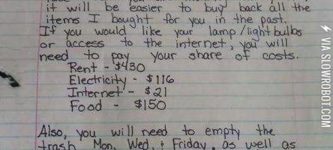 it will be easier to buy back all the
items I bought for you in the past.
If you would like your lamp/lightbulbs
or access to the internet, you will
need to pay your share of costs.
Rent - $430
Electricity - $116
Internet - $21
Food - $150
Also, you will need to empty the
trash Mon, Wed, & Friday, as well as
VIA SLOWROBOT.COM